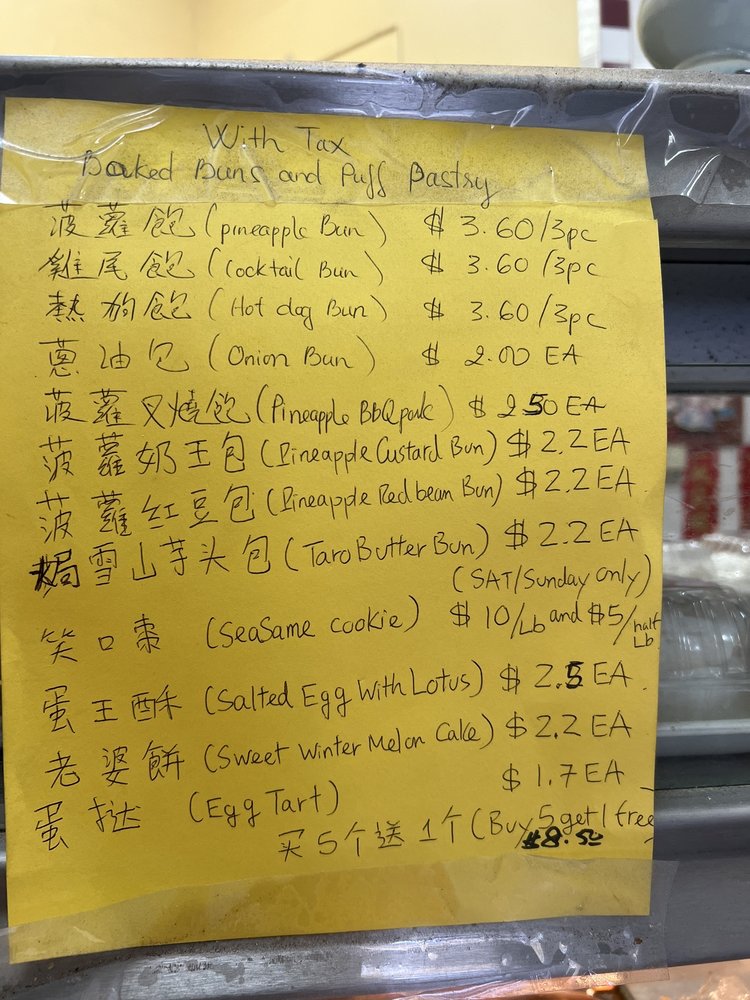 With Tax
Baked Buns and Puff Pastry
菠蘿飽 (pineapple Bun) $ 3.60/3pc
雞尾飽 (Cocktail Bun) $ 3.60/3pc
熱狗飽 (Hot dog Bun) $ 3.60/3pc
蔥油包 (Onion Bun) $ 2.00 EA
菠蘿叉燒飽 (Pineapple BBQ pork) $ 2.50 EA
菠蘿奶王包 (Pineapple Custard Bun) $2.2 EA
菠蘿红豆包 (Pineapple Red bean Bun) $2.2 EA
焗雪山芋头包 (Taro Butter Bun) $2.2 EA
(SAT/Sunday only)
笑口棗 (SeaSame cookie) $ 10/Lb and $5/half Lb
蛋王酥 (Salted Egg With Lotus) $ 2.5 EA
老婆餅 (Sweet Winter Melon Cake) $ 2.2 EA
蛋撻 (Egg Tart) $ 1.7 EA
买5个送1个 (Buy 5 get 1 free
$8.50